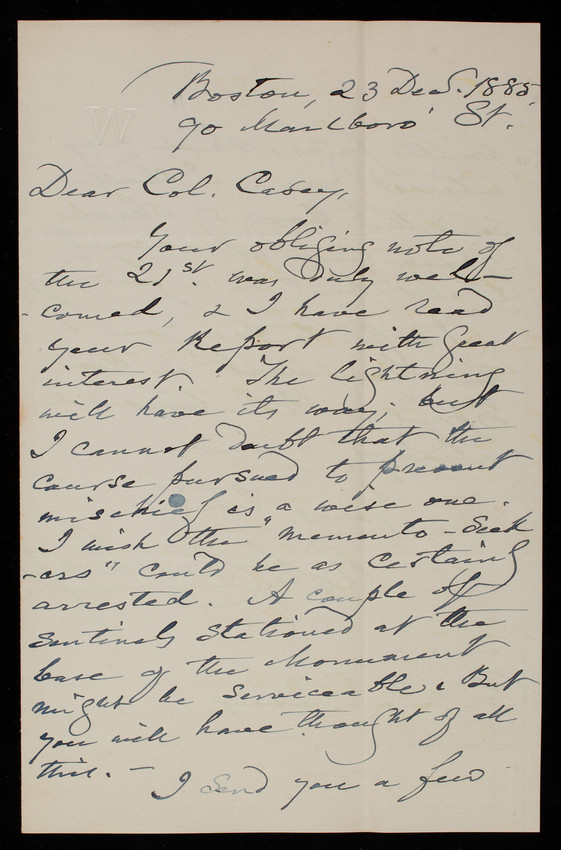 W
Boston, 23 Dec. 1885
90 Marlboro' St.
Dear Col. Casey,
Your obliging note of
the 21st. was duly wel-
-comed, & I have read
your Report with great
interest. The lightning
will have its way; but
I cannot doubt that the
course pursued to prevent
mischief is a wise one.
I wish the "memento-seek
-ers" could be as certainly
arrested. A couple of
sentinels stationed at the
base of the Monument
might be serviceable. But
you will have thought of all
this. —
I send you a few